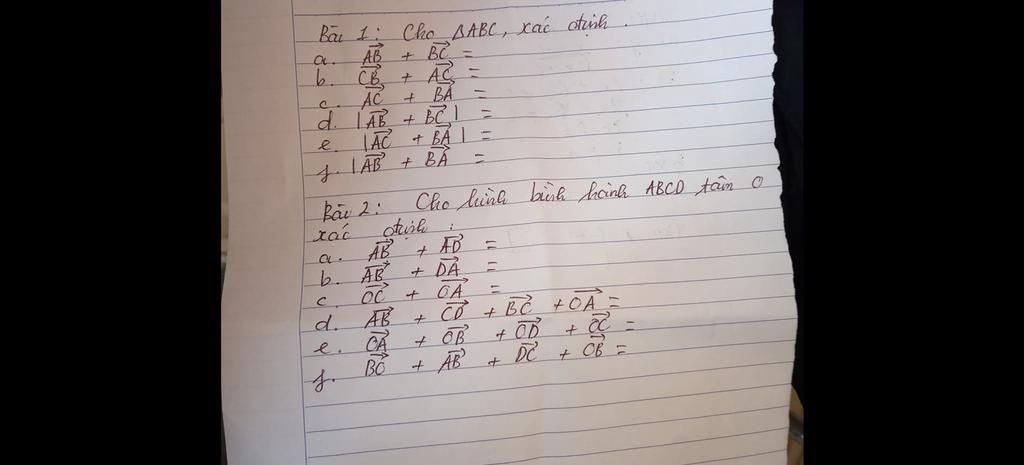 Bài 1: Cho ΔABC, xác định.
a. $\overrightarrow{AB}$ + $\overrightarrow{BC}$ =
b. $\overrightarrow{CB}$ + $\overrightarrow{AC}$ =
c. $\overrightarrow{AC}$ + $\overrightarrow{BA}$ =
d. |$\overrightarrow{AB}$ + $\overrightarrow{BC}$| =
e. |$\overrightarrow{AC}$ + $\overrightarrow{BA}$| =
f. |$\overrightarrow{AB}$ + $\overrightarrow{BA}$ =
Bài 2: Cho hình bình hành ABCD tâm O
xác định:
a. $\overrightarrow{AB}$ + $\overrightarrow{AD}$ =
b. $\overrightarrow{AB}$ + $\overrightarrow{DA}$ =
c. $\overrightarrow{OC}$ + $\overrightarrow{OA}$ =
d. $\overrightarrow{AB}$ + $\overrightarrow{CD}$ + $\overrightarrow{BC}$ + $\overrightarrow{OA}$ =
e. $\overrightarrow{OA}$ + $\overrightarrow{OB}$ + $\overrightarrow{OD}$ + $\overrightarrow{OC}$ =
f. $\overrightarrow{BO}$ + $\overrightarrow{AB}$ + $\overrightarrow{DC}$ + $\overrightarrow{OB}$ =